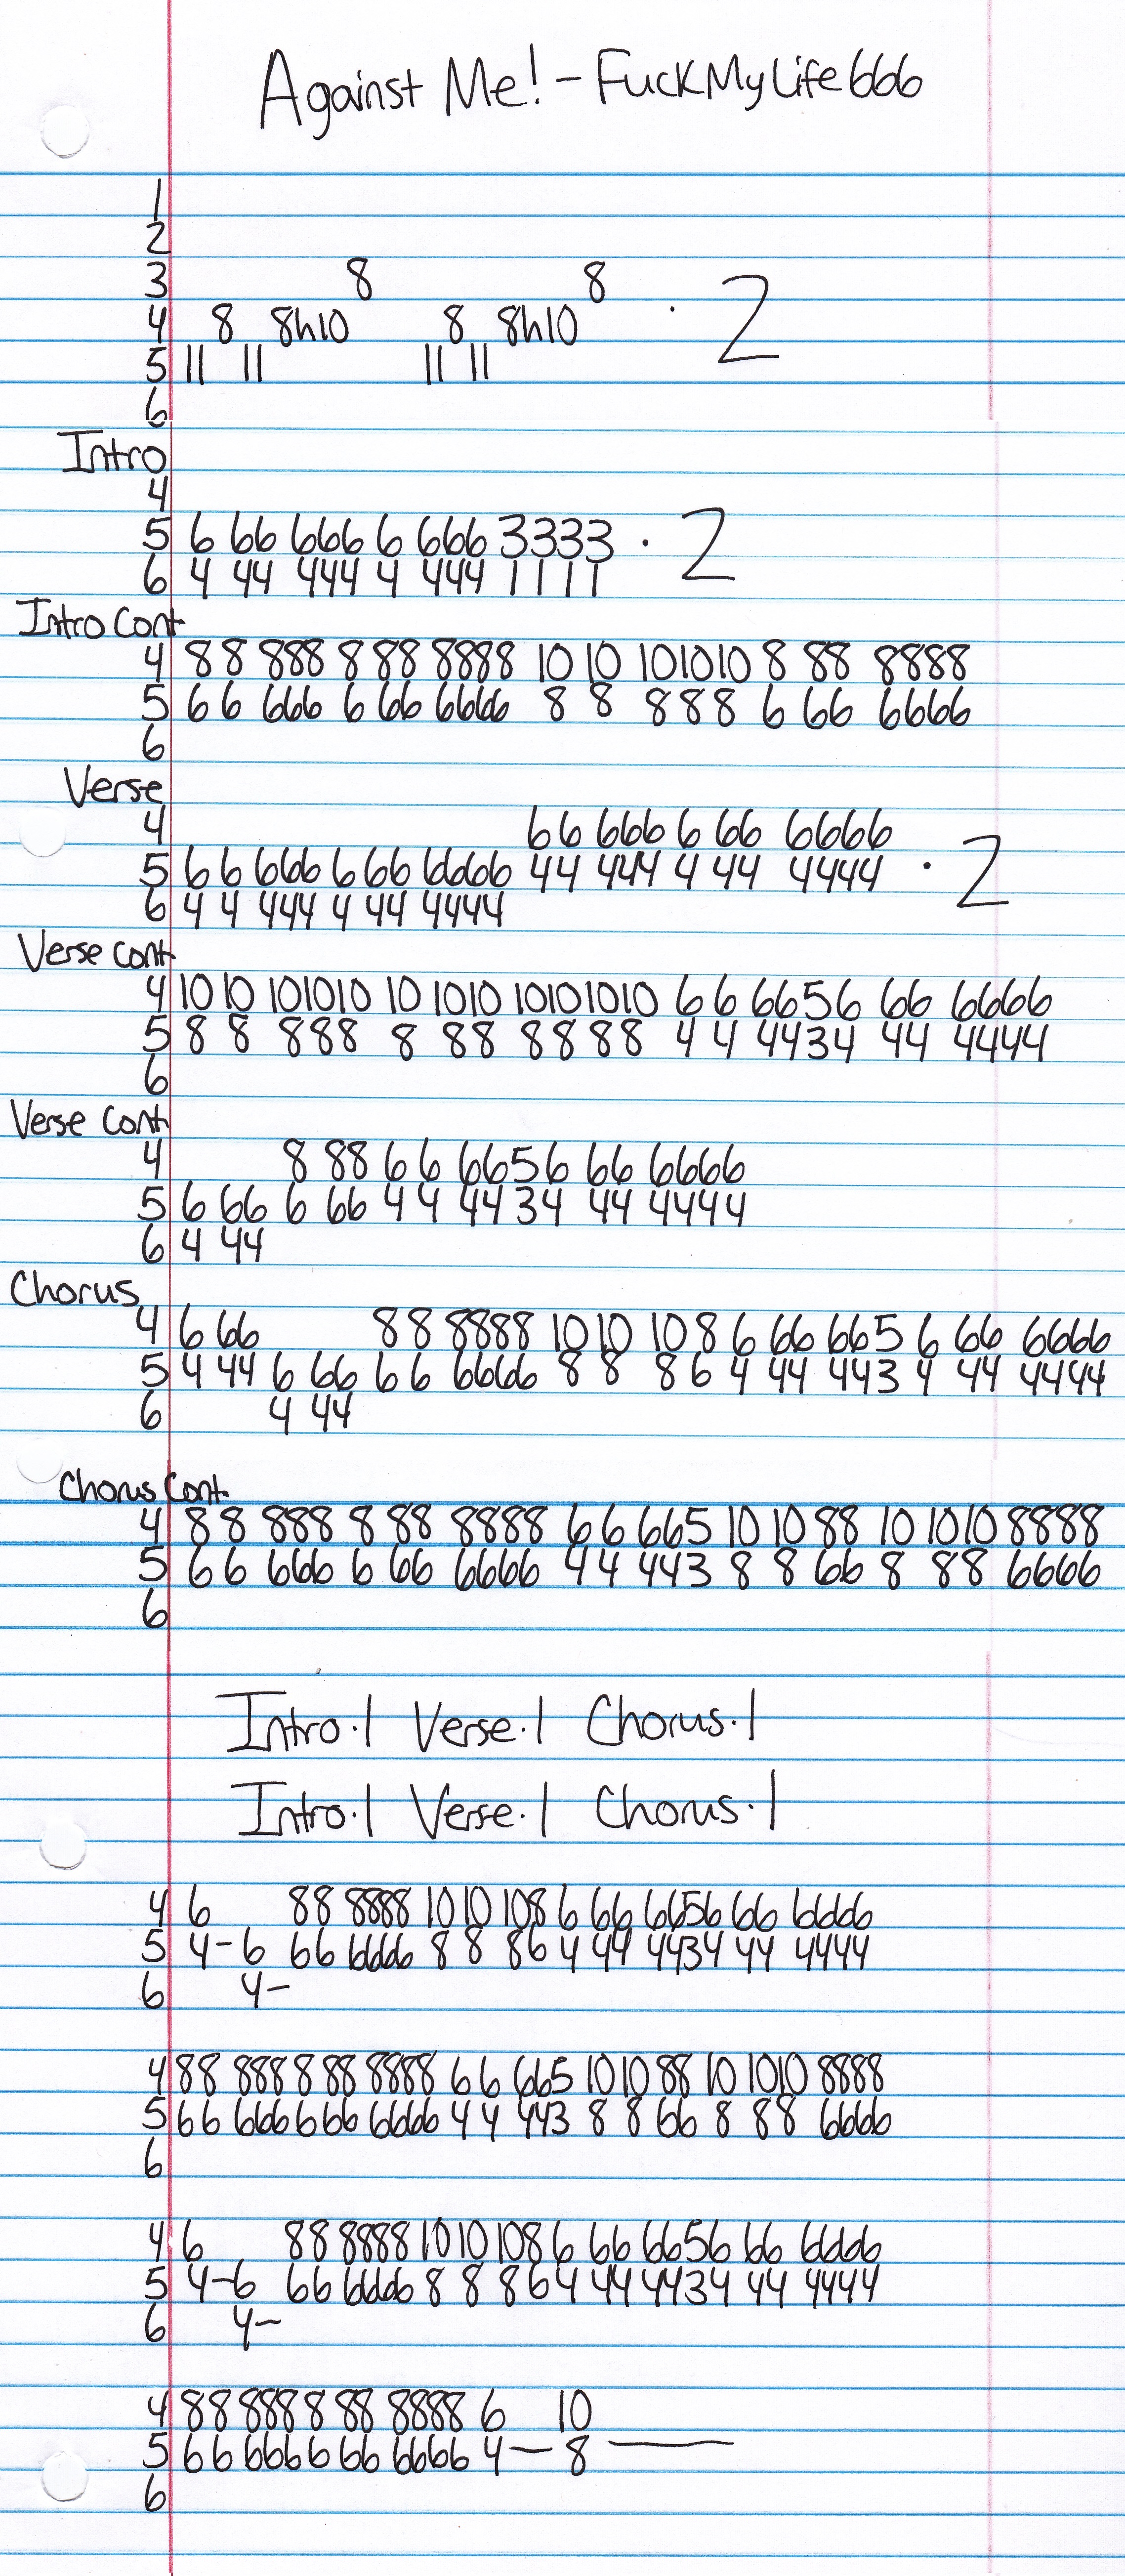 Against Me! - FuckMyLife666
1
2
3 8 8
4 8 8h10 8 8h10 · 2
5 11 11 11 11
6
Intro
4
5 6 66 666 6 666 3333 · 2
6 4 44 444 4 444 1111
Intro Cont
4 8 8 888 8 88 8888 10 10 101010 8 88 8888
5 6 6 666 6 66 6666 8 8 888 6 66 6666
6
Verse
4 66 666 6 66 6666
5 6 6 666 6 66 6666 44 444 4 44 4444 · 2
6 4 4 444 4 44 4444
Verse Cont
4 10 10 101010 10 1010 10101010 6 6 6656 66 6666
5 8 8 888 8 88 8888 4 4 4434 44 4444
6
Verse Cont
4 8 88 6 6 6656 66 6666
5 6 66 6 66 4 4 4434 44 4444
6 4 44
Chorus
4 6 66 8 8 8888 10 10 10 8 6 66 665 6 66 6666
5 4 44 6 66 6 6 6666 8 8 8 6 4 44 443 4 44 4444
6 4 44
Chorus Cont
4 8 8 888 8 88 8888 6 6 665 10 10 88 10 1010 8888
5 6 6 666 6 66 6666 4 4 443 8 8 66 8 88 6666
6
Intro·1 Verse·1 Chorus·1
Intro·1 Verse·1 Chorus·1
4 6 88 8888 10 10 108 6 66 6656 66 6666
5 4-6 66 6666 8 8 86 4 44 4434 44 4444
6 4-
4 88 888 8 88 8888 6 6 665 1010 88 10 1010 8888
5 66 666 6 66 6666 4 4 443 8 8 66 8 88 6666
6
4 6 88 8888 10 10 108 6 66 6656 66 6666
5 4-6 66 6666 8 8 86 4 44 4434 44 4444
6 4-
4 88 888 8 88 8888 6 10
5 66 666 6 66 6666 4 — 8 —
6